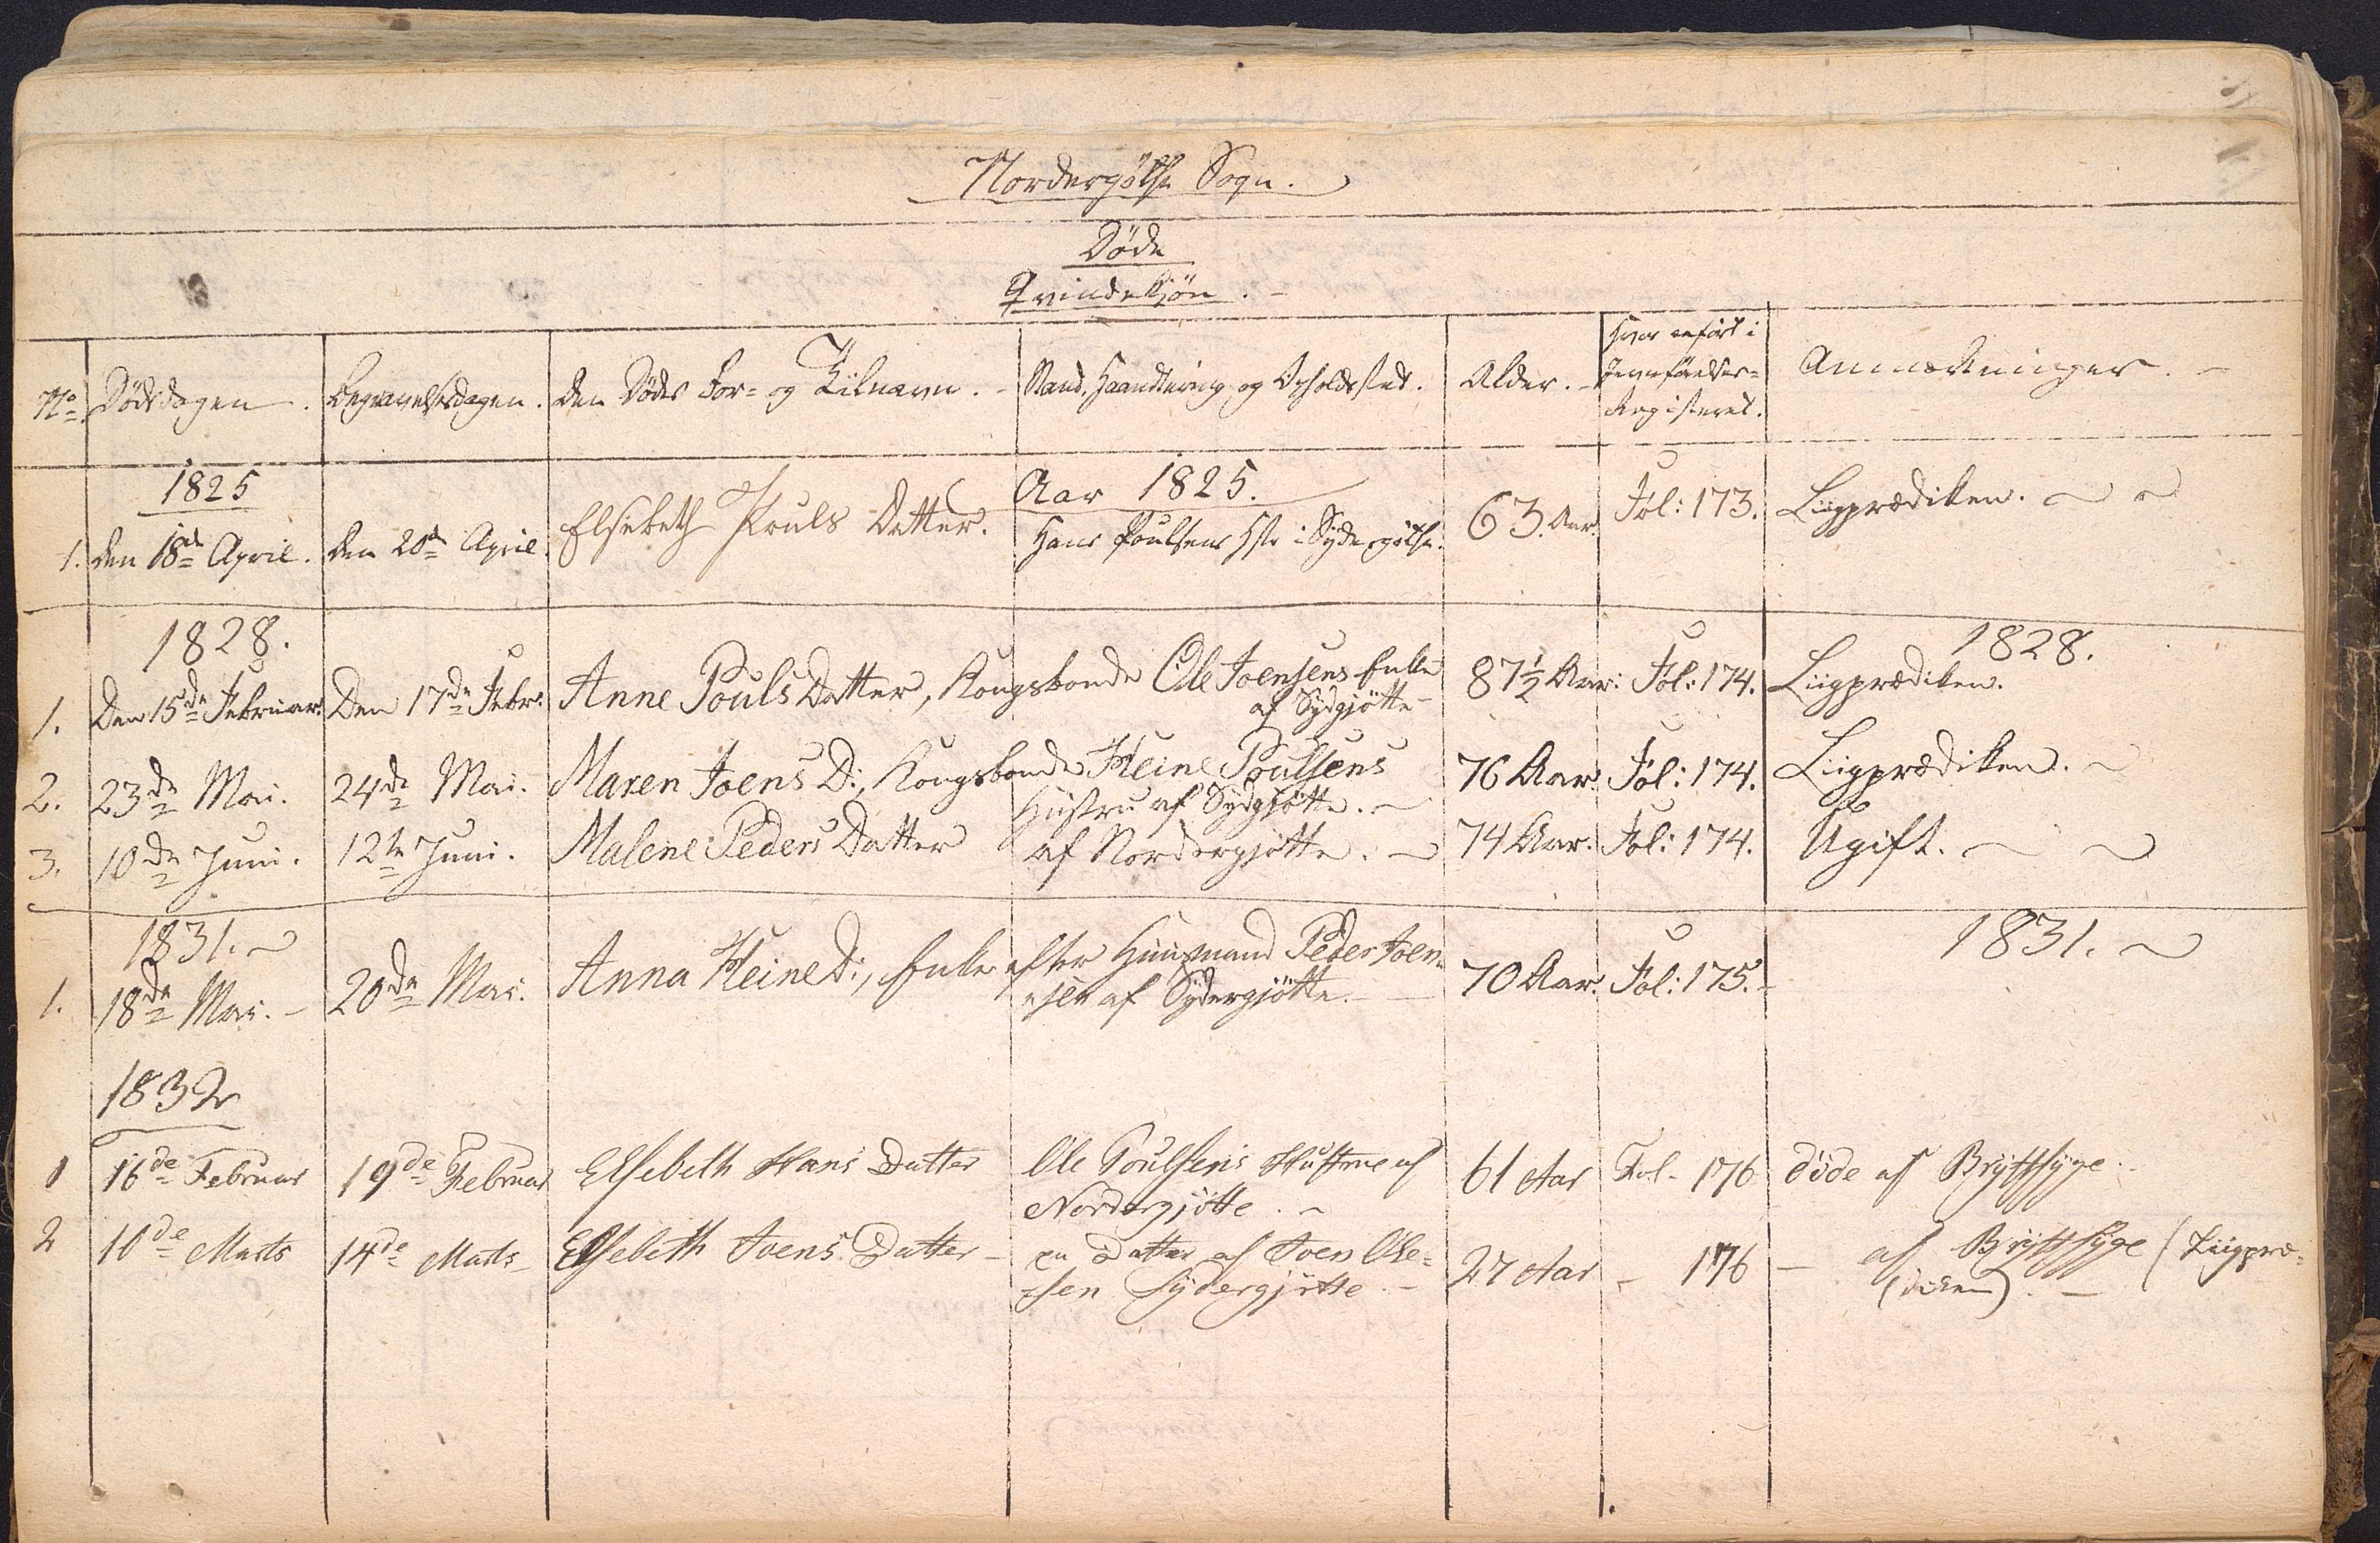 Nordergøthe Sogn.
Døde
Qvindekjøn.
No. Dødsdagen. Begravelsesdagen. Den Dødes For- og Tilnavn. Stand, Haandtering og Opholdssted. Alder. Hvor anført i Jevnførelses-Registeret. Anmærkninger.
1825 Aar 1825.
1. Den 18de April. Den 20de April. Elsebeth Pouls Datter. Hans Poulsens Hstr i Sydergøthe. 63. Aar. Fol: 173. Liigprædiken.
1828. 1828.
1. Den 15de Februar. Den 17de Febr. Anne Pouls Datter, Kongsbonde Ole Joensens Enke 87½ Aar: Fol: 174. Liigprædiken.
af Sydgjøtte
2. 23de Mai. 24de Mai. Maren Joens D:, Kongsbonde Heine Poulsens 76 Aar. Fol: 174. Liigprædiken.
Hustru af Sydgjøtte.
3. 10de Juni. 12te Juni. Malene Peders Datter af Nordergjøtte. 74 Aar. Fol: 174. Ugift.
1831. 1831.
1. 18de Mai. 20de Mai. Anna Heine D:, Enke efter Huusmand Peder Joen- 70 Aar. Fol: 175.
sen af Sydergjøtte.
1832
1 16de Februar 19de Februar Elsebeth Hans Datter Ole Poulsens Hustrue af 61 Aar Fol. 176 døde af Brystsyge.
Nordergjøtte.
2 10de Marts 14de Marts Elsebeth Joens Datter en Datter af Joen Ole= 27 Aar - 176 - af Brystsyge (Liigpræ-
sen Sydergjøtte. (diken).